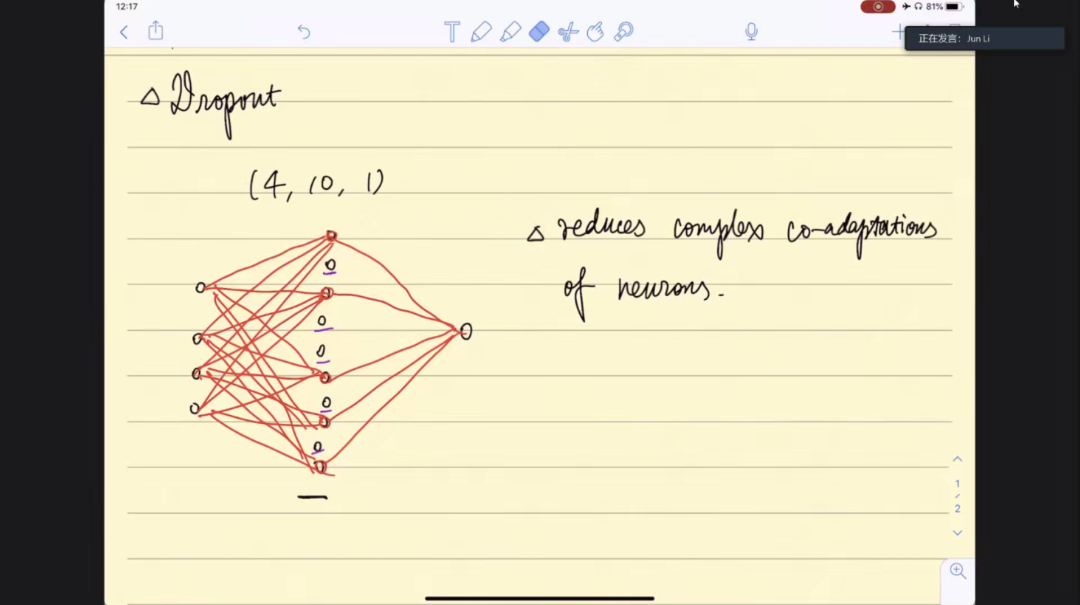 12:17
81%
正在发言: Jun Li
△ Dropout
(4, 10, 1)
△ reduces complex co-adaptations
of neurons.
1
/
2